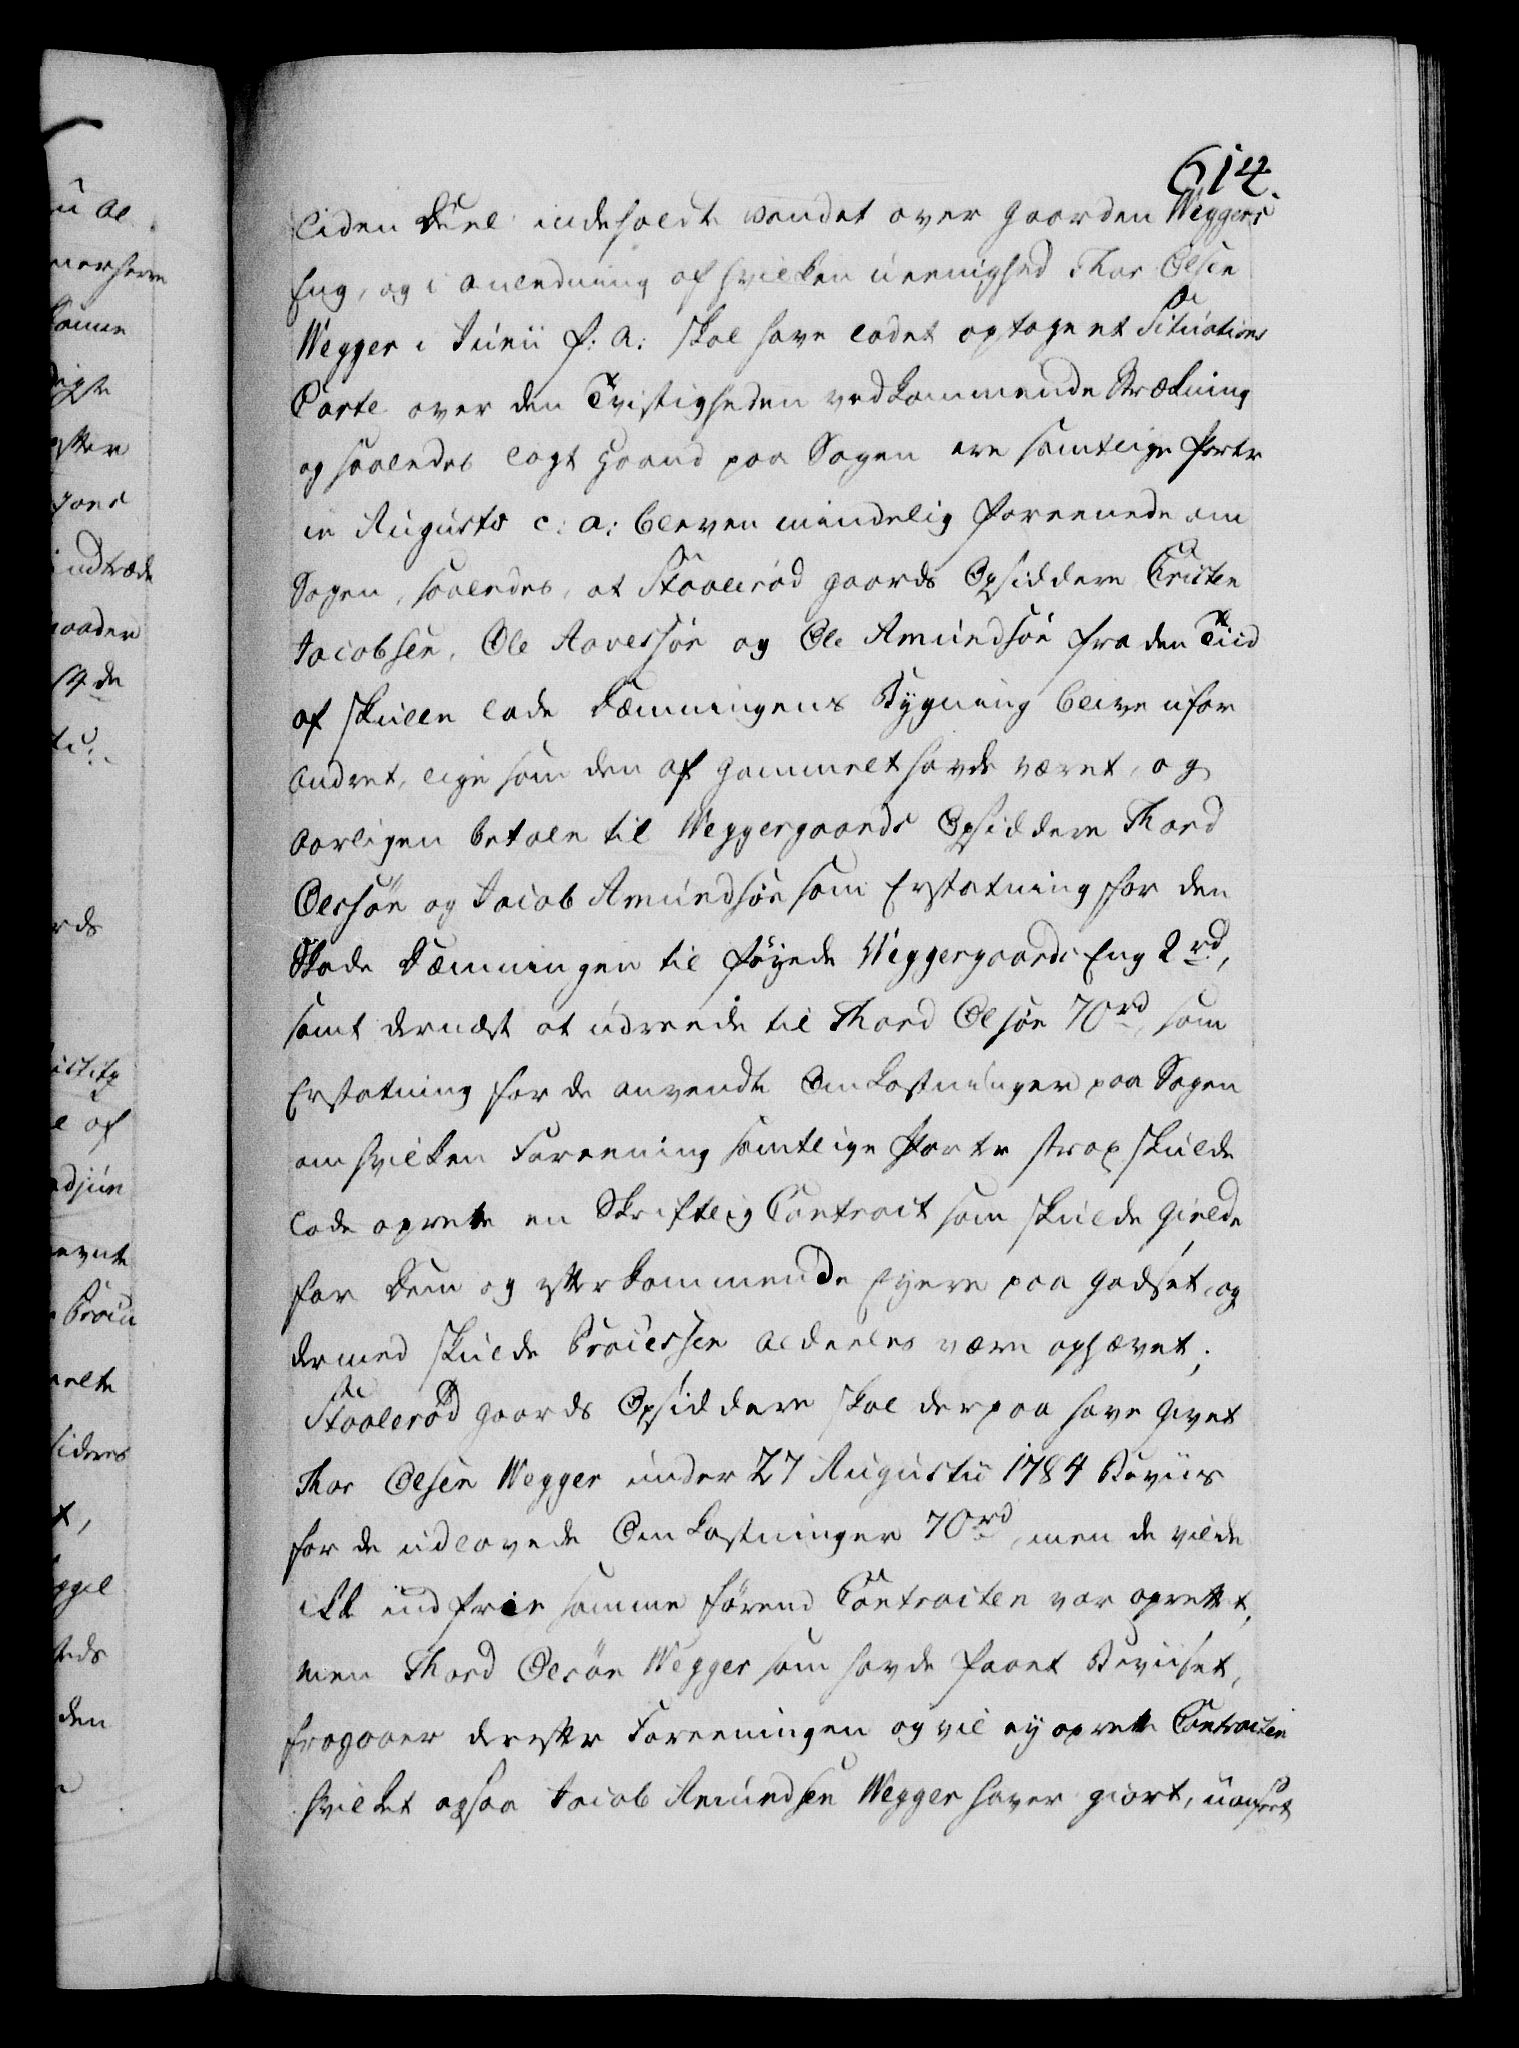 614.
liden Deel indeholdt Vandet over Gaarden Weggers
Eng, og i Anledning af hvilken Ueenighed Thor Olsen
Wegger i Junii f: a: skal have ladet optage et Situations
Carte over den Tvistigheden vedkommende Strækning
og saaledes lagt Haand paa Sagen ere samtlige Parter
in Augusto c: a: bleven mindelig foreenede om
Sagen, saaledes, at Staalerød gaards Opsiddere Christen
Jacobsen, Ole Aavessøn og Ole Amundsøn fra den Tiid
af skulle lade Dæmningens Bygning blive ufor
andret, lige som den af gammelt havde været, og
aarligen betale til Weggergaards Opsiddere Thord
Olessøn og Jacob Amundsøn som Erstatning for den
Skade Dæmningen tilføyede Weggergaards Eng 2 rd,
samt dernæst at udreede til Thord Olsøn 70 rd, som
Erstatning for de anvendte Omkostninger paa Sagen
om hvilken Foreening samtlige Parter strax skulde
lade oprette en Skriftlig Contract som skulde gielde
for dem og efterkommende Eyere paa Godset, og
dermed skulde Processen aldeeles være ophævet;
Staalerød gaards Opsiddere skal derpaa have givet
Thor Olsen Wegger under 27 Augustii 1784 Beviis
for de udlovede Omkostninger 70 rd, men de vilde
ikke indfrie samme førend Contracten var oprettet,
men Thord Olesøn Wegger som havde faaet Beviiset,
fragaaer derefter Foreeningen og vil ey oprette Contracten
hvilket ogsaa Jacob Amundsen Wegger haver giort, uanseet